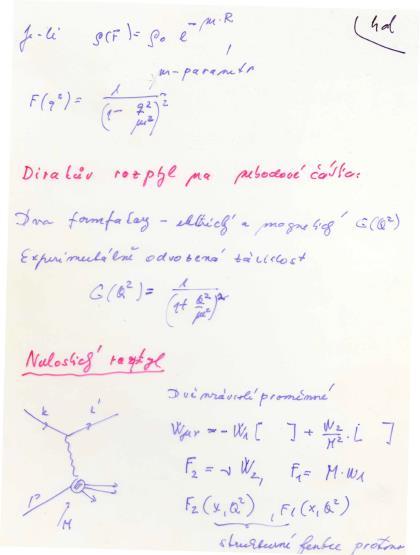 4d
Je-li ρ(r) = ρ₀ e^{-m·R}
m-parametr
F(q²) = 1 / (1 - q²/m²)²
Diracův rozptyl na nebodové částici
Dva formfaktory - elektrický a magnetický G(Q²)
Experimentálně odvozená závislost
G(Q²) = 1 / (1+ Q²/m²)²
Nelastický rozptyl
k k'
Dvě nezávislé proměnné
Wμν = - W₁ [ ] + W₂/M² · [ ]
F₂ = ν W₂, F₁ = M·W₁
P
F₂(x,Q²), F₁(x,Q²)
M
strukturní funkce protonu